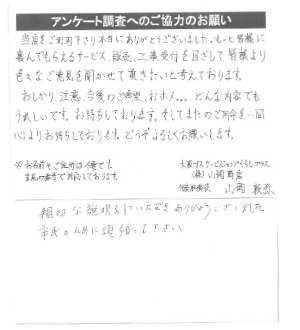 アンケート調査へのご協力のお願い
当店をご利用下さり本当にありがとうございました。もっと皆様に
喜んでもらえるサービス、販売、工事受付を目ざして皆様より
色々なご意見を聞かせて頂きたいと考えております。
おしかり、注意、今後のご希望、おホメ… どんな内容でも
うれしいです。お待ちしております。そしてまたのご利用を一同
心よりお待ちしております。どうぞよろしくお願いします。
※お名前、ご住所は不要です。
大阪ガスサービスショップ
(株)山岡商店
山岡
細やかな説明をしていただきありがとうございました
市民の為に頑張って下さい